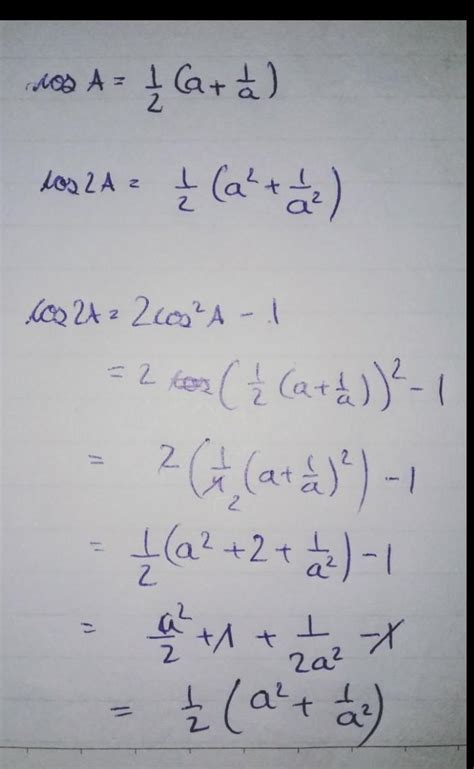 cos A = 1/2 (a + 1/a)
cos2A = 1/2 (a² + 1/a²)
cos2A = 2cos²A - 1
= 2 (1/2 (a + 1/a))² - 1
= 2 (1/4₂ (a + 1/a)²) - 1
= 1/2 (a² + 2 + 1/a²) - 1
= a²/2 + 1 + 1/2a² - 1
= 1/2 (a² + 1/a²)